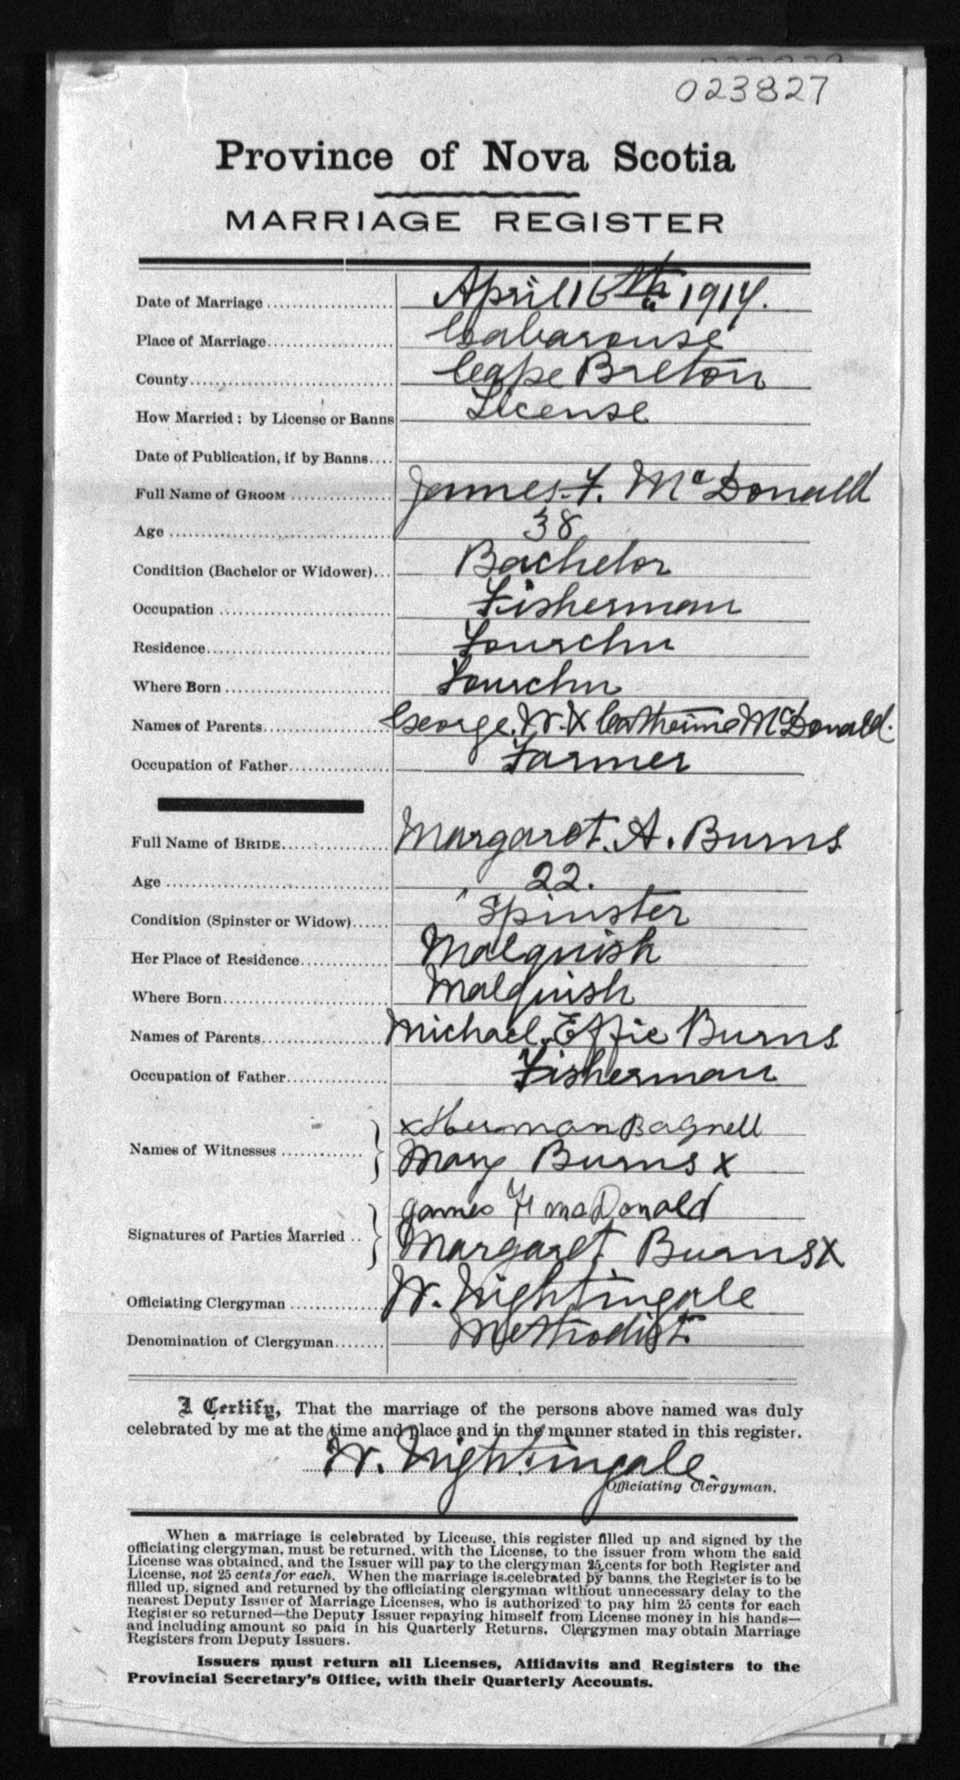 023827
Province of Nova Scotia
MARRIAGE REGISTER
Date of Marriage .................. April 16th 1914.
Place of Marriage .................. Gabarouse
County .................. Cape Breton
How Married: by License or Banns License
Date of Publication, if by Banns....
Full Name of GROOM .............. James. F. McDonald
Age .................. 38
Condition (Bachelor or Widower)... Bachelor
Occupation .................. Fisherman
Residence .................. Fourchu
Where Born .................. Fourchu
Names of Parents .................. George. W. & Catherine McDonald.
Occupation of Father .............. Farmer
Full Name of BRIDE .............. Margaret. A. Burns
Age .................. 22.
Condition (Spinster or Widow)...... Spinster
Her Place of Residence ............ Malguish
Where Born .................. Malguish
Names of Parents .................. Michael. Effie Burns
Occupation of Father .............. Fisherman
Names of Witnesses ............ x Herman Bagnell
Mary Burns x
Signatures of Parties Married .. James F McDonald
Margaret Burns x
Officiating Clergyman ............ W. Nightingale
Denomination of Clergyman........ Methodist.
I Certify, That the marriage of the persons above named was duly
celebrated by me at the time and place and in the manner stated in this register.
W. Nightingale.
Officiating Clergyman.
When a marriage is celebrated by License, this register filled up and signed by the
officiating clergyman, must be returned, with the License, to the issuer from whom the said
License was obtained, and the Issuer will pay to the clergyman 25 cents for both Register and
License, not 25 cents for each. When the marriage is celebrated by banns, the Register is to be
filled up, signed and returned by the officiating clergyman without unnecessary delay to the
nearest Deputy Issuer of Marriage Licenses, who is authorized to pay him 25 cents for each
Register so returned—the Deputy Issuer repaying himself from License money in his hands—
and including amount so paid in his Quarterly Returns. Clergymen may obtain Marriage
Registers from Deputy Issuers.
Issuers must return all Licenses, Affidavits and Registers to the
Provincial Secretary's Office, with their Quarterly Accounts.